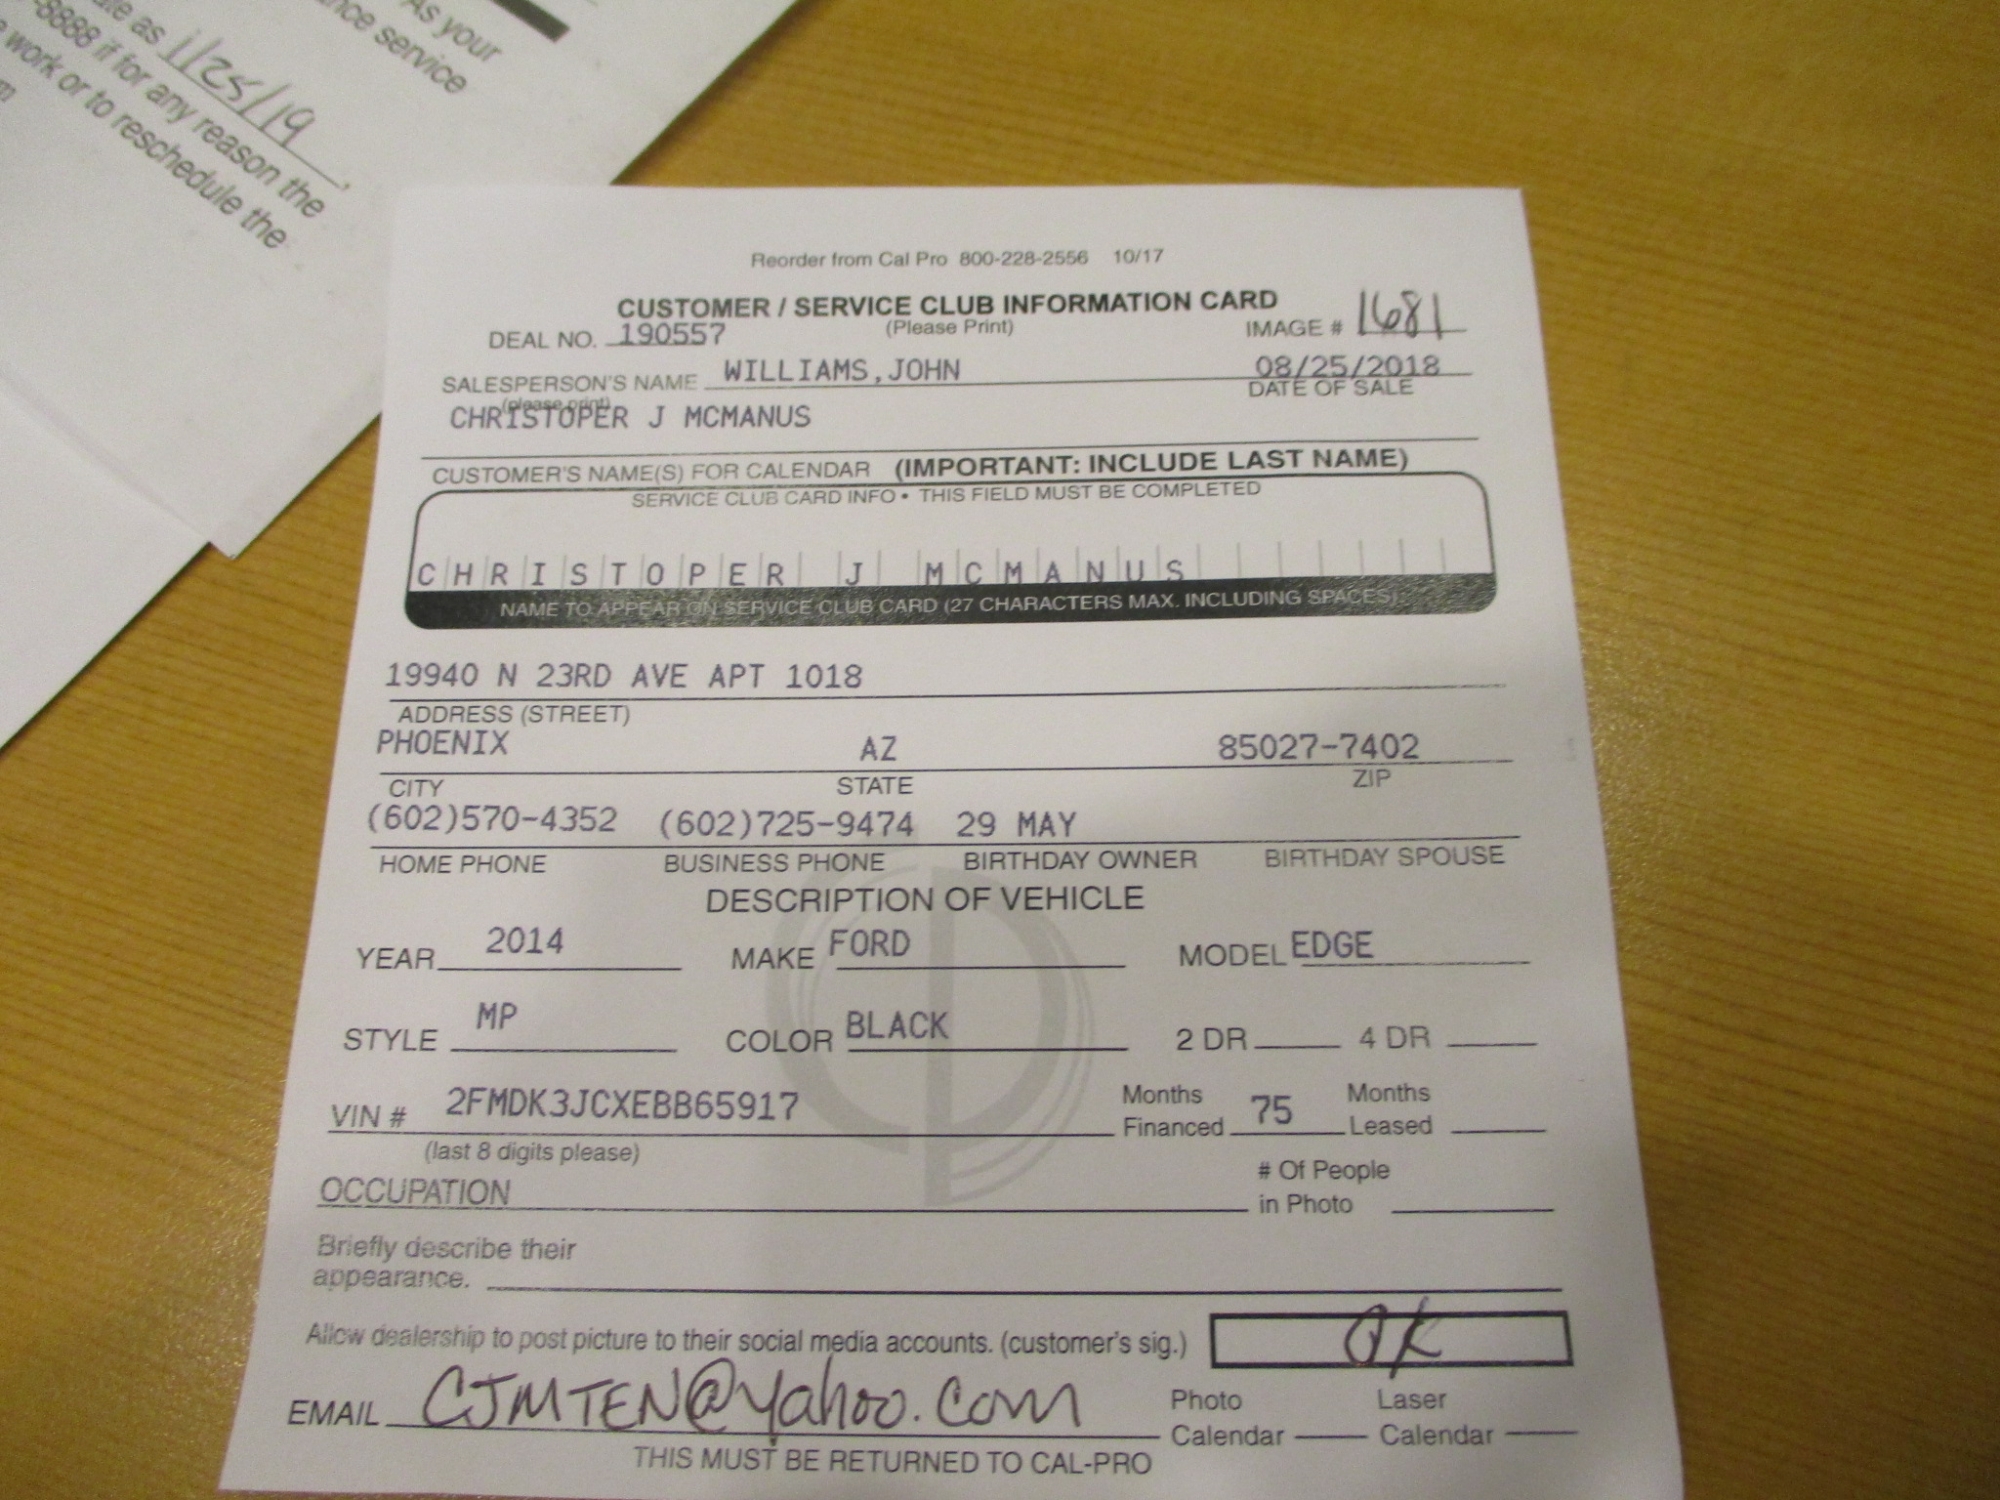 ate as 1/25/19.
-8888 if for any reason the
work or to reschedule the
As your
nce service
Reorder from Cal Pro 800-228-2556 10/17
CUSTOMER / SERVICE CLUB INFORMATION CARD
(Please Print)
DEAL NO. 190557
IMAGE # 1681
SALESPERSON'S NAME WILLIAMS,JOHN
(please print)
08/25/2018
DATE OF SALE
CHRISTOPER J MCMANUS
CUSTOMER'S NAME(S) FOR CALENDAR (IMPORTANT: INCLUDE LAST NAME)
SERVICE CLUB CARD INFO • THIS FIELD MUST BE COMPLETED
CHRISTOPER J MCMANUS
NAME TO APPEAR ON SERVICE CLUB CARD (27 CHARACTERS MAX. INCLUDING SPACES)
19940 N 23RD AVE APT 1018
ADDRESS (STREET)
PHOENIX AZ 85027-7402
CITY STATE ZIP
(602)570-4352 (602)725-9474 29 MAY
HOME PHONE BUSINESS PHONE BIRTHDAY OWNER BIRTHDAY SPOUSE
DESCRIPTION OF VEHICLE
YEAR 2014 MAKE FORD MODEL EDGE
STYLE MP COLOR BLACK 2 DR 4 DR
VIN # 2FMDK3JCXEBB65917 Months Financed 75 Months Leased
(last 8 digits please)
OCCUPATION # Of People in Photo
Briefly describe their
appearance.
Allow dealership to post picture to their social media accounts. (customer's sig.) OK
EMAIL CJMTEN@yahoo.com Photo Calendar Laser Calendar
THIS MUST BE RETURNED TO CAL-PRO